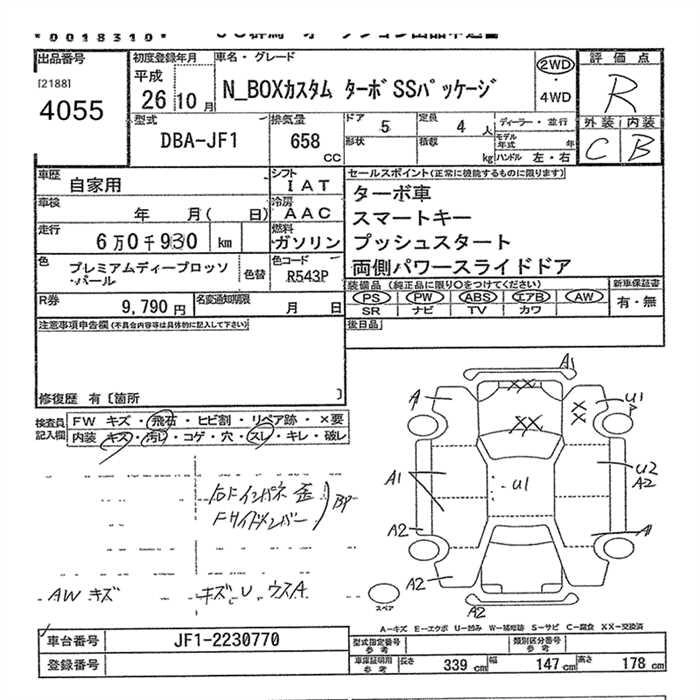 *0018310*
出品番号
[2188]
4055
初度登録年月
平成
26 10 月
車名・グレード
N_BOXカスタム ターボSSパッケージ
2WD
・
4WD
評価点
R
外装 内装
C B
型式
DBA-JF1
排気量
658
CC
ドア 5
定員 4 人
形状
積載
kg
ディーラー・並行
モデル
年式 年
ハンドル 左・右
車歴
自家用
シフト
IAT
車検
年 月( 日)
冷房
AAC
走行
6万0千930 km
燃料
ガソリン
色
プレミアムディープロッソ
・パール
色替
色コード
R543P
R券
9,790 円
名変通知期限
月 日
セールスポイント(正常に機能するものに限ります)
ターボ車
スマートキー
プッシュスタート
両側パワースライドドア
装備品 (純正品に限り○をつけてください)
PS PW ABS エアB AW
SR ナビ TV カワ
新車保証書
有・無
後日品
注意事項申告欄(不具合内容等は具体的に記入して下さい)
修復歴 有〔箇所 〕
検査員
記入欄
FW キズ・飛石・ヒビ割・リペア跡・×要
内装・キズ・汚レ・コゲ・穴・スレ・キレ・破レ
右Fインパネ 歪
Fサイドメンバー
BP
AW キズ
キズ U ウスA
A1
A
XX
XX
X
X
U1
P
A1
U1
U2
A2
A2
A1
A2
A2
スペア
A-キズ E-エクボ U-凹み W-補修跡 S-サビ C-腐食 XX-交換済
車台番号
JF1-2230770
登録番号
型式指定番号
参考
類別区分番号
参考
車庫証明用
参考
長さ 339 cm
幅 147 cm
高さ 178 cm